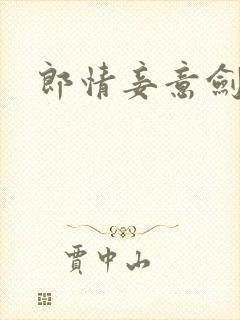 郎情妾意劍
賈中山